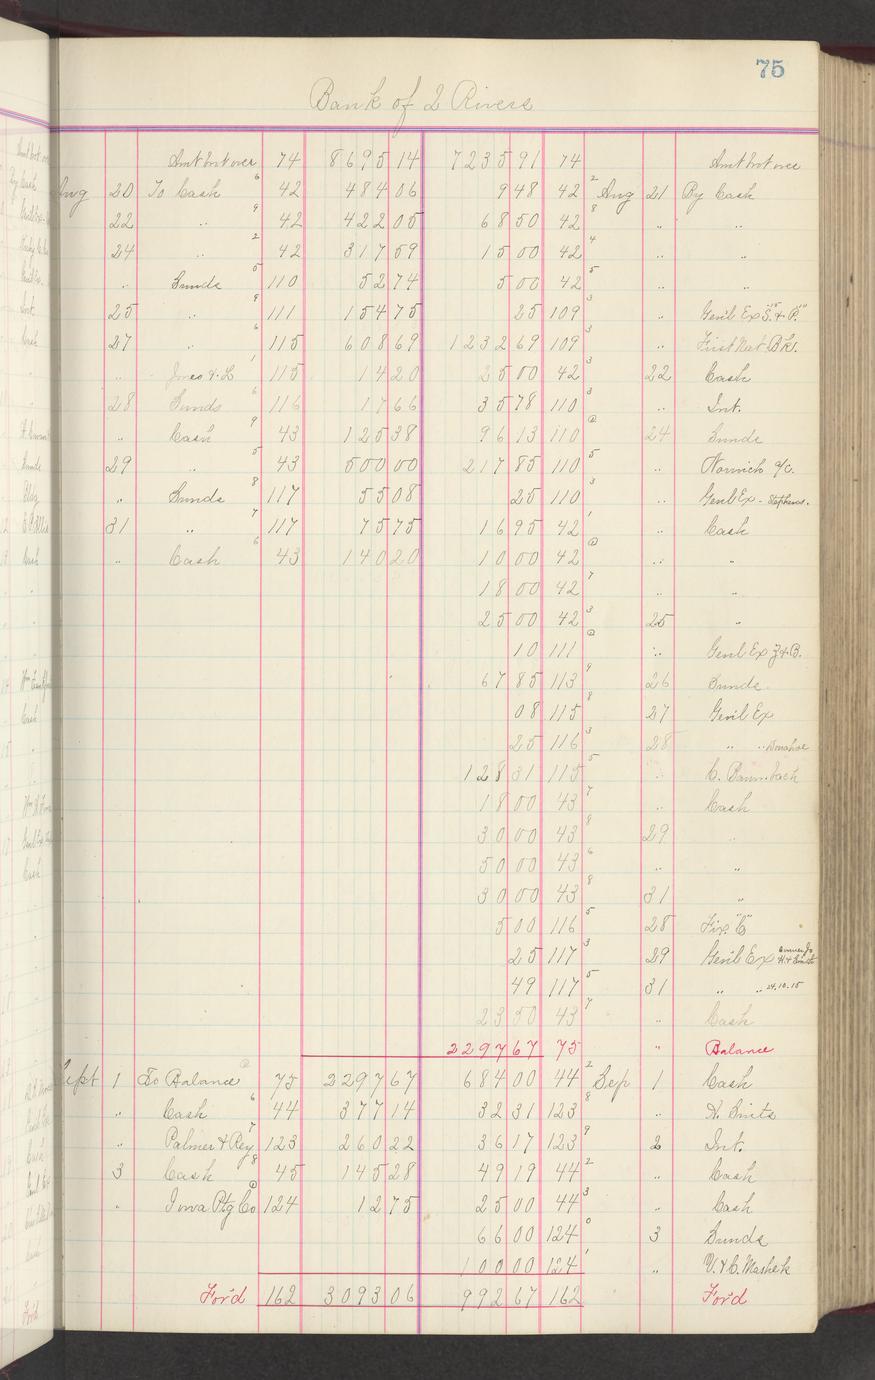 75
Bank of 2 Rivers
Amt brt over 74 8695 14 7235 91 74 Amt brt over
Aug 20 To Cash 6 42 484 06 9 48 42 2 Aug 21 By Cash
22 " 9 42 422 05 68 50 42 8 " "
24 " 2 42 317 59 15 00 42 4 " "
" Sunds 5 110 52 74 5 00 42 5 " "
25 " 9 111 154 75 25 109 3 " Gen'l Ex S. & P.
27 " 6 115 608 69 1232 69 109 3 " First Nat Bk.
" Jones & L 1 115 14 20 25 00 42 3 22 Cash
28 Sunds 6 116 17 66 35 78 110 3 " Int.
" Cash 9 43 125 38 96 13 110 24 Sunds
29 " 5 43 500 00 217 85 110 5 " Norwich a/c.
" Sunds 8 117 55 08 25 110 3 " Genl Ex - Stephens.
31 " 7 117 75 75 16 95 42 1 " Cash
" Cash 6 43 140 20 10 00 42 " "
18 00 42 7 " "
25 00 42 3 25 "
10 111 " Genl Ex Z & B.
67 85 113 9 26 Sunds
08 115 8 27 Gen'l Ex
25 116 3 28 " " Donahoe
128 31 115 5 " C.
18 00 43 7 " Cash
30 00 43 8 29 "
50 00 43 6 " "
30 00 43 8 31 "
5 00 116 5 28 Fix. "C"
25 117 3 29 Gen'l Ex
49 117 5 31 " " 24.10.15
23 50 43 7 " Cash
2297 67 75 " Balance
Sept 1 To Balance 75 2297 67 684 00 44 2 Sep 1 Cash
" Cash 6 44 377 14 32 31 123 8 " H. Smits
" Palmer & Rey 7 123 260 22 36 17 123 9 2 Int.
3 Cash 8 45 145 28 49 19 44 2 " Cash
" Iowa Ptg Co 124 12 75 25 00 44 3 " Cash
66 00 124 0 3 Sunds
100 00 124 1 " V. & C. Mashek
For'd 162 3093 06 992 67 162 For'd